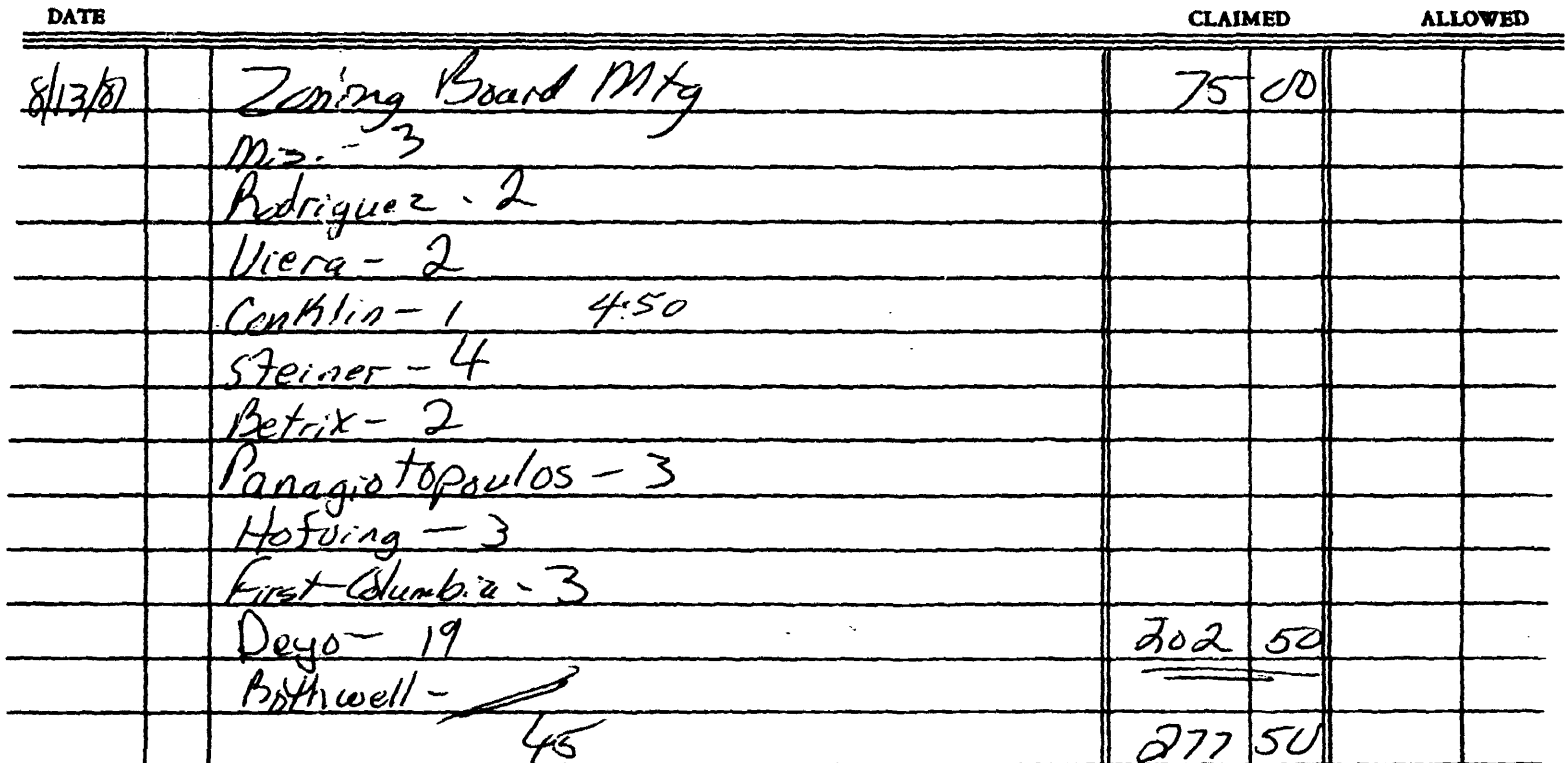 DATE CLAIMED ALLOWED
Zoning Board Mtg 75 00
Mis. - 3
Rodriguez - 2
Viera - 2
Conklin - 1 4:50
Steiner - 4
Betrix - 2
Panagiotopoulos - 3
Hofving - 3
First Columbia - 3
Deyo - 19 202 50
Bothwell -
45 277 50